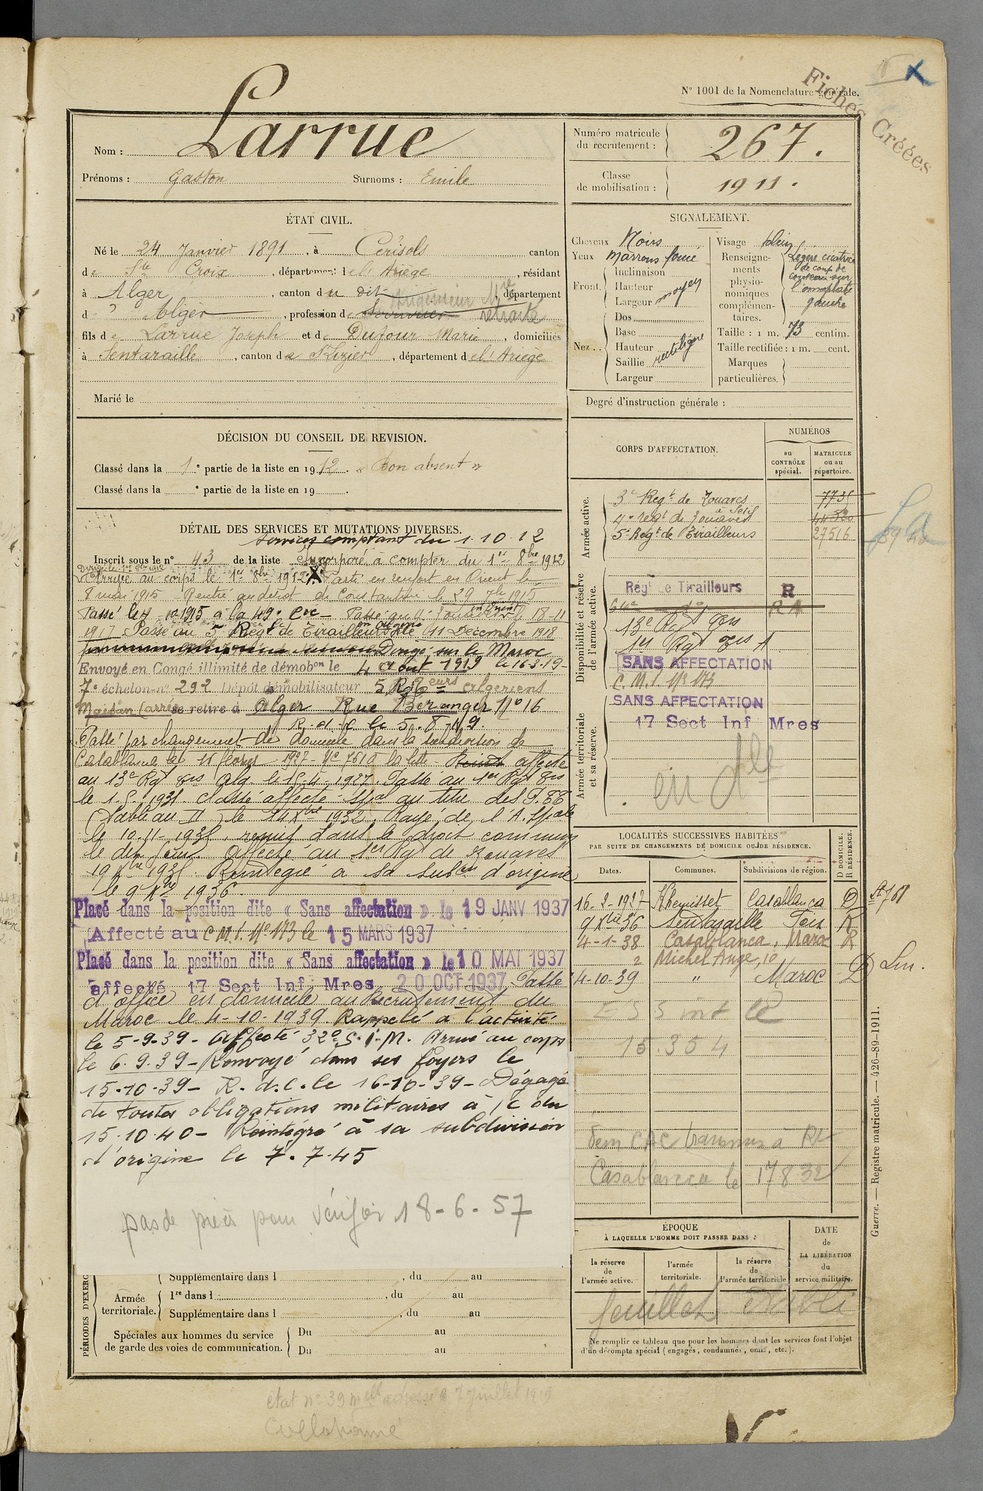 Fichés Créées
N° 1001 de la Nomenclature générale.
Nom : Larrue
Prénoms : Gaston Surnoms : Emile
Numéro matricule du recrutement : 267.
Classe de mobilisation : 1911.
ÉTAT CIVIL.
Né le 24 Janvier 1891, à Cerisols canton
de Ste Croix, département de l'Ariège, résidant
à Alger, canton du dit, département
d' Alger, profession de retraité
fils de Larrue Joseph et de Dufour Marie, domiciliés
à Sentaraille, canton de St Lizier, département de l'Ariège
Marié le
SIGNALEMENT.
Cheveux Noirs
Yeux Marrons foncé
Front. Inclinaison
Hauteur moyen
Largeur
Nez. Dos
Base
Hauteur rectiligne
Saillie
Largeur
Visage plein
Renseignements physionomiques complémentaires. Légère cicatrice de coup de couteau sur l'omoplate gauche
Taille : 1 m. 73 centim.
Taille rectifiée : 1 m. cent.
Marques particulières.
Degré d'instruction générale :
DÉCISION DU CONSEIL DE REVISION.
Classé dans la 1e partie de la liste en 1912. « Bon absent »
Classé dans la e partie de la liste en 19
CORPS D'AFFECTATION.
NUMÉROS
au CONTRÔLE spécial.
MATRICULE ou au répertoire.
Armée active.
3e Regt de Zouaves 7731
4e regt de Zouaves
5e Regt de Tirailleurs 27516
Disponibilité et réserve de l'armée active.
Regt de Tirailleurs R
SANS AFFECTATION
C. M. I. N° 173
SANS AFFECTATION
17 Sect Inf Mres
Armée territoriale et sa réserve.
DÉTAIL DES SERVICES ET MUTATIONS DIVERSES.
Services comptant du 1.10.12
Inscrit sous le n° 43 de la liste Incorporé à compter du 1er 8bre 1912
Arrivé au corps le 1er 8bre 1912 Parti en renfort en Orient le
8 mai 1915 Rentré au dépôt de Constantine le 29 7bre 1915
1917 Passé au 5e Regt de Tirailleurs le 11 Décembre 1918
Dirigé sur le Maroc
Envoyé en Congé illimité de démobon le 4 Aout 1919 le 16-8-19-
7e échelon n° 292 Dépôt démobilisateur 5e R. Tirailleurs Algeriens
Maison Carrée se retire à Alger Rue Béranger N° 16
R. d. c. le 5.8.19
Passé par changement de domicile dans la subdivision de
Casablanca
au 13e Rgt Zges Alg. le 15.4.1927. Passé au 1er Rgt Zges
le 1.5.1931
(Tableau II) le 14 Xbre 1932. Rayé de l'A. Spale
le 10-11-1935 remis dans le droit commun
le dit jour Affecté au 1er Rg de Zouaves
Réintégré à sa subdon d'origine
le 9 Xbre 1936
Placé dans la position dite « Sans affectation » le 19 JANV 1937
Affecté au C. M. I. N° 173 le 15 MARS 1937
Placé dans la position dite « Sans affectation » le 10 MAI 1937
affecté 17 Sect Inf Mres 20 OCT 1937 Passé
d'office en domicile au Recrutement du
Maroc le 4-10-1939 Rappelé à l'activité
le 5-9-39- Affecté 32e S.I.M. Arrivé au corps
le 6.9.39- Renvoyé dans ses foyers le
15-10-39- R.d.c. le 16-10-39- Dégagé
de toutes obligations militaires à /c du
15-10-40- Réintégré à sa subdivision
d'origine le 7.7.45
pas de pièces pour vérifier 18-6-57
LOCALITÉS SUCCESSIVES HABITÉES
PAR SUITE DE CHANGEMENTS DE DOMICILE OU DE RÉSIDENCE.
Dates. Communes. Subdivisions de région. D DOMICILE. R RÉSIDENCE.
16-2-1927 Khemisset Casablanca D
9 Xbre 36 Sentaraille Foix R
4-1-38 Casablanca, Maroc R
2 Michel Ange, 10
4-10-39 " Maroc D
15.354
Casablanca le 17 8 32
ÉPOQUE
À LAQUELLE L'HOMME DOIT PASSER DANS :
la réserve de l'armée active.
l'armée territoriale.
la réserve de l'armée territoriale
DATE de LA LIBÉRATION du service militaire.
feuillet établi
Ne remplir ce tableau que pour les hommes dont les services font l'objet
d'un décompte spécial (engagés, condamnés, omis, etc.).
PÉRIODES D'EXERC
Supplémentaire dans l , du au
Armée territoriale. 1re dans l , du au
Supplémentaire dans l , du au
Spéciales aux hommes du service de garde des voies de communication. Du au
Du au
Guerre. — Registre matricule. — 426-89-1911.